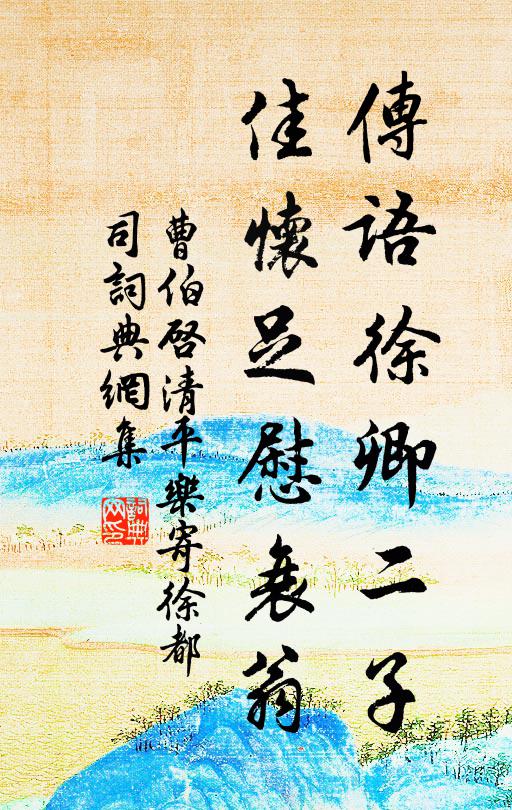 傳語徐卿二子
佳懷足慰衰翁
曹伯啓清平樂寄徐都
司詞典網集
詞典